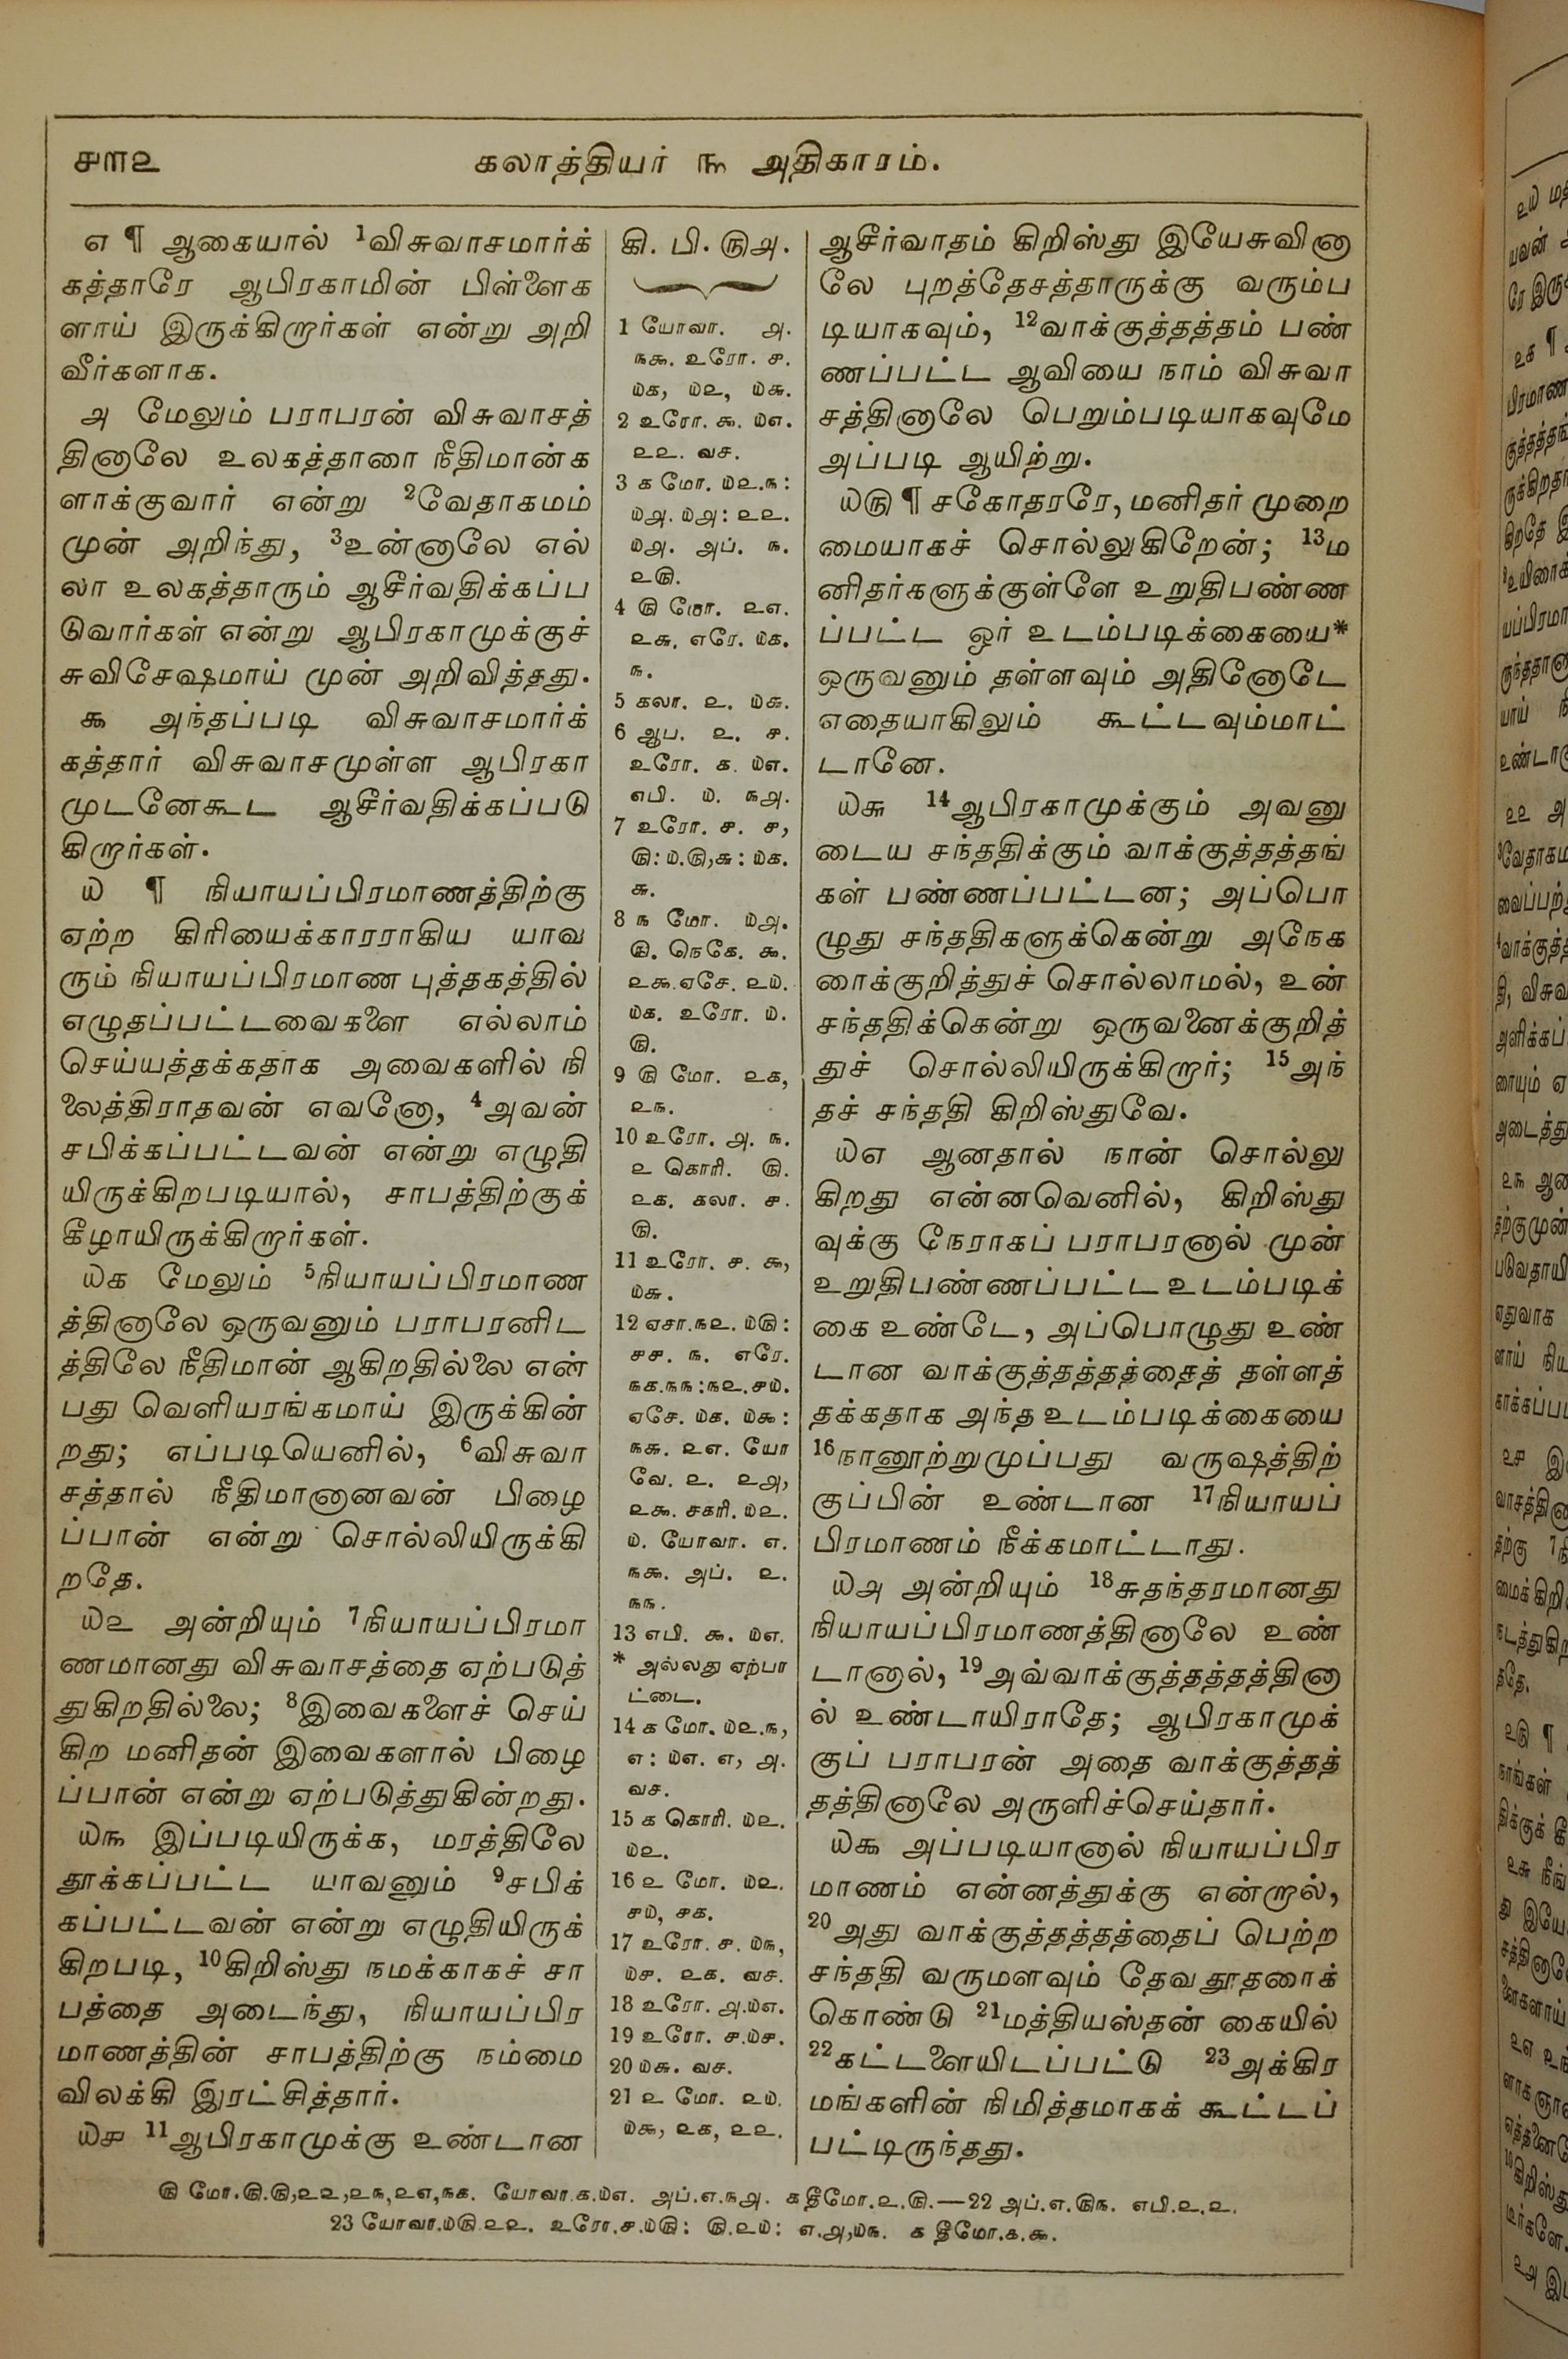 ௪௱௩௨
கலாத்தியர் ௩ அதிகாரம்.
௭ ¶ ஆகையால் 1விசுவாசமார்க்
கத்தாரே ஆபிரகாமின் பிள்ளைக
ளாய் இருக்கிறார்கள் என்று அறி
வீர்களாக.
௮ மேலும் பராபரன் விசுவாசத்
தினாலே உலகத்தாரை நீதிமான்க
ளாக்குவார் என்று 2வேதாகமம்
முன் அறிந்து, 3உன்னாலே எல்
லா உலகத்தாரும் ஆசீர்வதிக்கப்ப
டுவார்கள் என்று ஆபிரகாமுக்குச்
சுவிசேஷமாய் முன் அறிவித்தது.
௯ அந்தப்படி விசுவாசமார்க்
கத்தார் விசுவாசமுள்ள ஆபிரகா
முடனேகூட ஆசீர்வதிக்கப்படு
கிறார்கள்.
௰ ¶ நியாயப்பிரமாணத்திற்கு
ஏற்ற கிரியைக்காரராகிய யாவ
ரும் நியாயப்பிரமாண புத்தகத்தில்
எழுதப்பட்டவைகளை எல்லாம்
செய்யத்தக்கதாக அவைகளில் நி
லைத்திராதவன் எவனோ, 4அவன்
சபிக்கப்பட்டவன் என்று எழுதி
யிருக்கிறபடியால், சாபத்திற்குக்
கீழாயிருக்கிறார்கள்.
௰௧ மேலும் 5நியாயப்பிரமாண
த்தினாலே ஒருவனும் பராபரனிட
த்திலே நீதிமான் ஆகிறதில்லை என்
பது வெளியரங்கமாய் இருக்கின்
றது; எப்படியெனில், 6விசுவா
சத்தால் நீதிமானானவன் பிழை
ப்பான் என்று சொல்லியிருக்கி
றதே.
௰௨ அன்றியும் 7நியாயப்பிரமா
ணமானது விசுவாசத்தை ஏற்படுத்
துகிறதில்லை; 8இவைகளைச் செய்
கிற மனிதன் இவைகளால் பிழை
ப்பான் என்று ஏற்படுத்துகின்றது.
௰௩ இப்படியிருக்க, மரத்திலே
தூக்கப்பட்ட யாவனும் 9சபிக்
கப்பட்டவன் என்று எழுதியிருக்
கிறபடி, 10கிறிஸ்து நமக்காகச் சா
பத்தை அடைந்து, நியாயப்பிர
மாணத்தின் சாபத்திற்கு நம்மை
விலக்கி இரட்சித்தார்.
௰௪ 11ஆபிரகாமுக்கு உண்டான
கி. பி. ௫௮.
1 யோவா. ௮.
௩௯. உரோ. ௪.
௰௧, ௰௨, ௰௬.
2 உரோ. ௯. ௰௭.
௨௨. வச.
3 ௧ மோ. ௰௨.௩:
௰௮. ௰௮: ௨௨.
௰௮. அப். ௩.
௨௫.
4 ௫ மோ. ௨௭.
௨௬. எரே. ௰௧.
௩.
5 கலா. ௨. ௰௬.
6 ஆப. ௨. ௪.
உரோ. ௧. ௰௭.
எபி. ௰. ௩௮.
7 உரோ. ௪. ௪,
௫: ௰.௫,௬: ௰௧.
௬.
8 ௩ மோ. ௰௮.
௫. நெகே. ௯.
௨௯. ஏசே. ௨௰.
௰௧. உரோ. ௰.
௫.
9 ௫ மோ. ௨௧,
௨௩.
10 உரோ. ௮. ௩.
௨ கொரி. ௫.
௨௧. கலா. ௪.
௫.
11 உரோ. ௪. ௯,
௰௬.
12 ஏசா.௩௨. ௰௫:
௪௪. ௩. எரே.
௩௧.௩௩:௩௨.௪௰.
ஏசே. ௰௧. ௰௯:
௩௬. ௨௭. யோ
வே. ௨. ௨௮,
௨௯. சகரி. ௰௨.
௰. யோவா. ௭.
௩௯. அப். ௨.
௩௩.
13 எபி. ௯. ௰௭.
* அல்லது ஏற்பா
ட்டை.
14 ௧ மோ. ௰௨.௩,
௭: ௰௭. ௭, ௮.
வச.
15 ௧ கொரி. ௰௨.
௰௨.
16 ௨ மோ. ௰௨.
௪௰, ௪௧.
17 உரோ. ௪. ௰௩,
௰௪. ௨௧. வச.
18 உரோ. ௮.௰௭.
19 உரோ. ௪.௰௪.
20 ௰௬. வச.
21 ௨ மோ. ௨௰.
௰௯, ௨௧, ௨௨.
ஆசீர்வாதம் கிறிஸ்து இயேசுவினா
லே புறத்தேசத்தாருக்கு வரும்ப
டியாகவும், 12வாக்குத்தத்தம் பண்
ணப்பட்ட ஆவியை நாம் விசுவா
சத்தினாலே பெறும்படியாகவுமே
அப்படி ஆயிற்று.
௰௫ ¶ சகோதரரே, மனிதர் முறை
மையாகச் சொல்லுகிறேன்; 13ம
னிதர்களுக்குள்ளே உறுதிபண்ண
ப்பட்ட ஓர் உடம்படிக்கையை*
ஒருவனும் தள்ளவும் அதினோடே
எதையாகிலும் கூட்டவும்மாட்
டானே.
௰௬ 14ஆபிரகாமுக்கும் அவனு
டைய சந்ததிக்கும் வாக்குத்தத்தங்
கள் பண்ணப்பட்டன; அப்பொ
ழுது சந்ததிகளுக்கென்று அநேக
ரைக்குறித்துச் சொல்லாமல், உன்
சந்ததிக்கென்று ஒருவனைக்குறித்
துச் சொல்லியிருக்கிறார்; 15அந்
தச் சந்ததி கிறிஸ்துவே.
௰௭ ஆனதால் நான் சொல்லு
கிறது என்னவெனில், கிறிஸ்து
வுக்கு நேராகப் பராபரனால் முன்
உறுதிபண்ணப்பட்ட உடம்படிக்
கை உண்டே, அப்பொழுது உண்
டான வாக்குத்தத்தத்தைத் தள்ளத்
தக்கதாக அந்த உடம்படிக்கையை
16நானூற்றுமுப்பது வருஷத்திற்
குப்பின் உண்டான 17நியாயப்
பிரமாணம் நீக்கமாட்டாது.
௰௮ அன்றியும் 18சுதந்தரமானது
நியாயப்பிரமாணத்தினாலே உண்
டானால், 19அவ்வாக்குத்தத்தத்தினா
ல் உண்டாயிராதே; ஆபிரகாமுக்
குப் பராபரன் அதை வாக்குத்தத்
தத்தினாலே அருளிச்செய்தார்.
௰௯ அப்படியானால் நியாயப்பிர
மாணம் என்னத்துக்கு என்றால்,
20அது வாக்குத்தத்தத்தைப் பெற்ற
சந்ததி வருமளவும் தேவதூதரைக்
கொண்டு 21மத்தியஸ்தன் கையில்
22கட்டளையிடப்பட்டு 23அக்கிர
மங்களின் நிமித்தமாகக் கூட்டப்
பட்டிருந்தது.
௫ மோ.௫.௫,௨௨,௨௩,௨௭,௩௧. யோவா.௧.௰௭. அப்.௭.௩௮. ௧ தீமோ.௨.௫.—22 அப்.௭.௫௩. எபி.௨.௨.
23 யோவா.௰௫.௨௨. உரோ.௪.௰௫: ௫.௨௰: ௭.௮,௰௩. ௧ தீமோ.௧.௯.